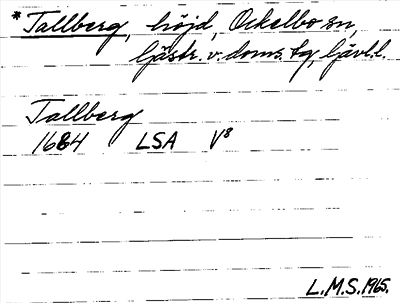 * Tallberg, höjd, Ockelbo sn,
Gästr. v. doms. tg, Gävl. l.
Tallberg
1684 LSA V8
L.M.S. 1965.